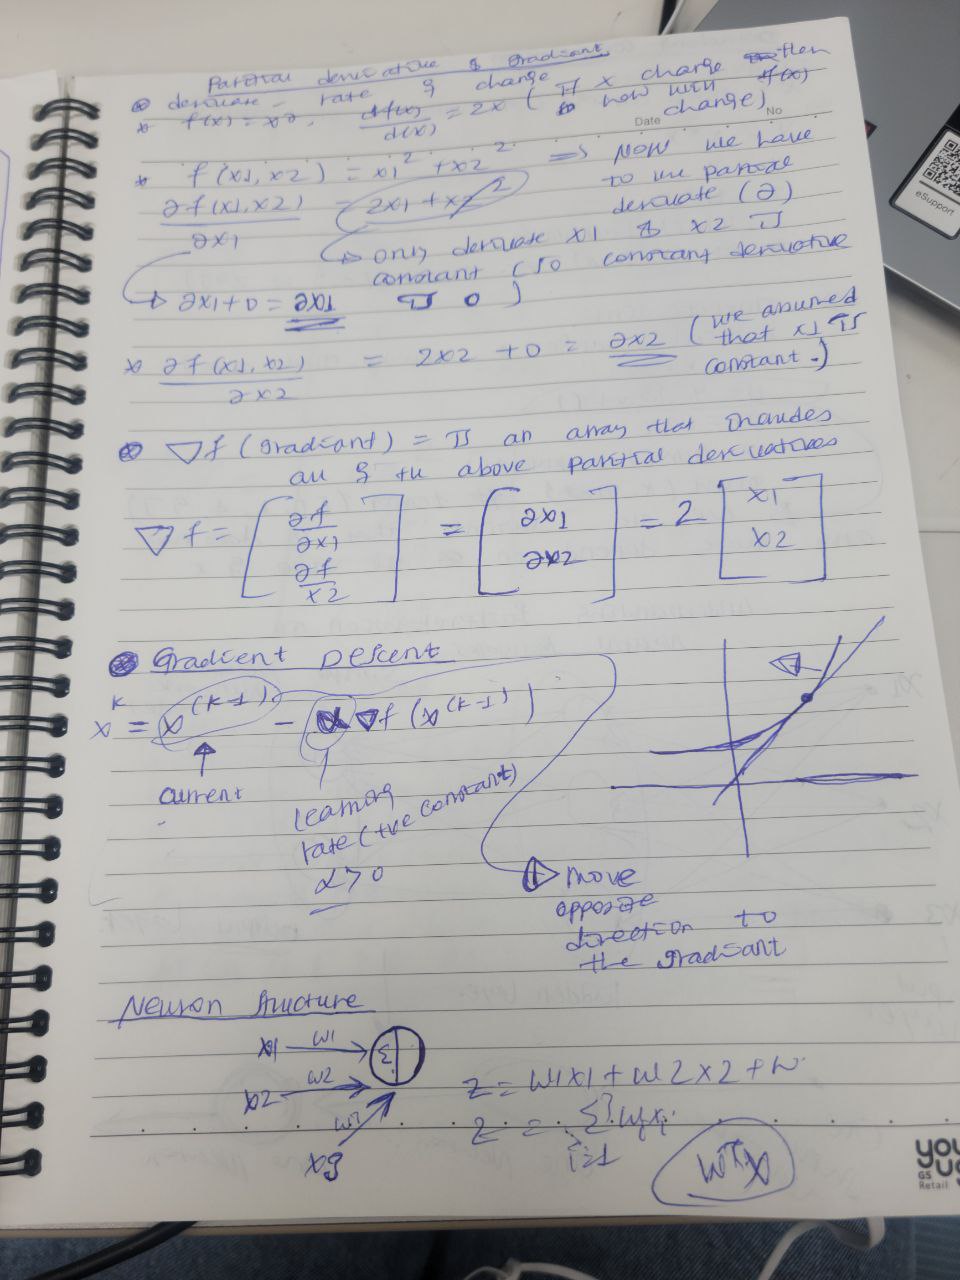 Partial derivative & Gradiant
derivate - rate of change
* f(x) = x², df(x)/d(x) = 2x ( If x change then
how will f(x)
change)
Date
No
* f(x1, x2) = x1² + x2² => Now we have
to use partial
derivate (∂)
∂f(x1, x2)/∂x1 = 2x1 + x2²
only derivate x1 & x2 is
constant (so constant derivative
is 0 )
2x1 + 0 = 2x1
* ∂f(x1, x2)/∂x2 = 2x2 + 0 = 2x2 (we assumed
that x1 is
constant.)
∇f (gradiant) = is an array that includes
all of the above partial derivatives
∇f = [∂f/∂x1 ∂f/x2] = [2x1 2x2] = 2 [x1 x2]
Gradient Descent
x^k = x^(k-1) - α ∇f (x^(k-1))
∇
current
learning
rate (+ve constant)
α > 0
move
opposite
direction to
the gradiant
Neuron structure
x1 w1 Σ
x2 w2
x3 w3
z = w1x1 + w2x2 + w
z = Σ wixi
i=1
wTx
you
us
GS
Retail
eSupport